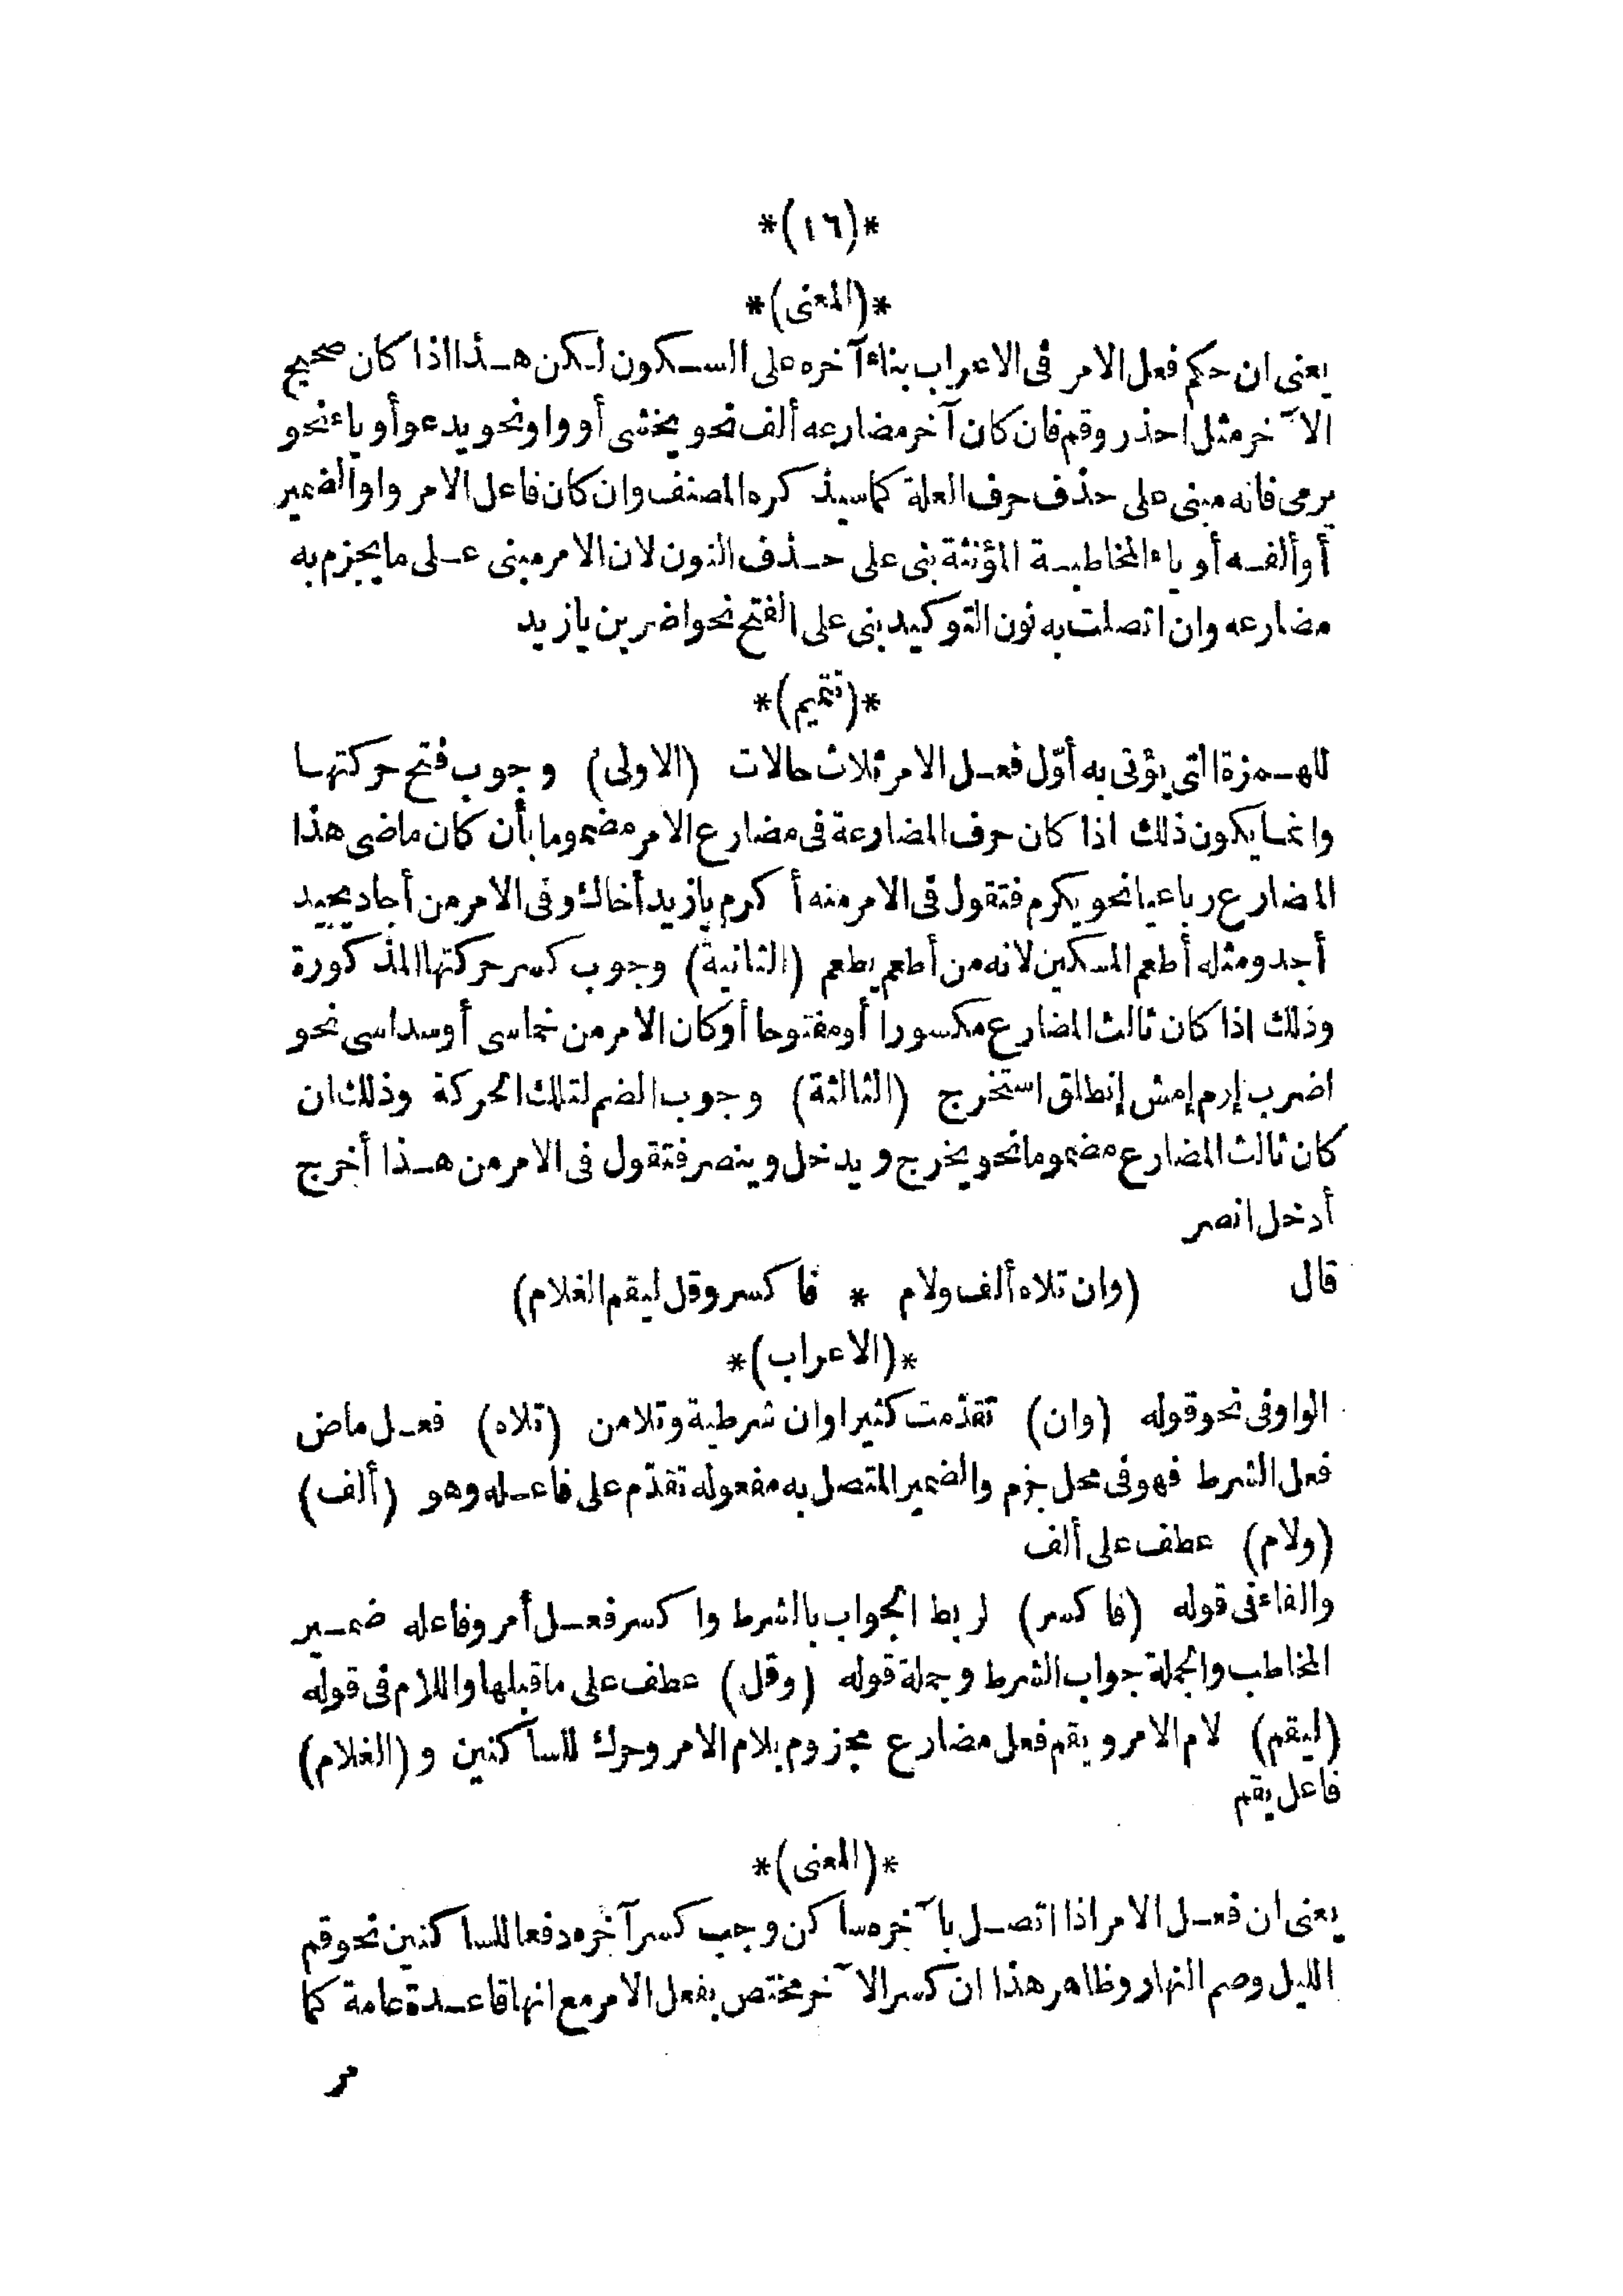 *(١٦)*
*(المعنى)*
يعنى ان حكم فعل الامر فى الاعراب بناء آخره على السكون لكن هذا اذا كان صحيح
الآخر مثل احذر وقم فان كان آخر مضارعه ألف نحو يخشى أو واو نحو يدعو أو ياء نحو
يرمى فانه مبنى على حذف حرف العلة كما سيذكره المصنف وان كان فاعل الامر واو الضمير
أو ألفه أو ياء المخاطبة المؤنثة بنى على حذف النون لان الامر مبنى على ما يجزم به
مضارعه وان اتصلت به نون التوكيد بنى على الفتح نحو اضربن يازيد
*(تتميم)*
للهمزة التى يؤتى به أوّل فعل الامر ثلاث حالات (الاولى) وجوب فتح حركتها
وانما يكون ذلك اذا كان حرف المضارعة فى مضارع الامر مضموما بأن كان ماضى هذا
المضارع رباعيا نحو يكرم فتقول فى الامر منه أكرم يازيد أخاك وفى الامر من أجاد يجيد
أجد ومثله أطعم المسكين لانه من أطعم يطعم (الثانية) وجوب كسر حركتها المذكورة
وذلك اذا كان ثالث المضارع مكسورا أو مفتوحا أو كان الامر من خماسى أو سداسى نحو
اضرب إرم إمش إنطلق استخرج (الثالثة) وجوب الضم لتلك الحركة وذلك ان
كان ثالث المضارع مضموما نحو يخرج و يدخل و ينصر فتقول فى الامر من هذا أخرج
أدخل انصر
قال (وان تلاه ألف ولام * فاكسر وقل ليقم الغلام)
*(الاعراب)*
الواو فى نحو قوله (وان) تقدّمت كثيرا وان شرطية وتلا من (تلاه) فعل ماض
فعل الشرط فهو فى محل جزم والضمير المتصل به مفعوله تقدّم على فاعله وهو (ألف)
(ولام) عطف على ألف
والفاء فى قوله (فاكسر) لربط الجواب بالشرط واكسر فعل أمر وفاعله ضمير
المخاطب والجملة جواب الشرط وجملة قوله (وقل) عطف على ما قبلها واللام فى قوله
(ليقم) لام الامر و يقم فعل مضارع مجزوم بلام الامر وحرك للساكنين و (الغلام)
فاعل يقم
*(المعنى)*
يعنى ان فعل الامر اذا اتصل بآخره ساكن وجب كسر آخره دفعا للساكنين نحو قم
الليل وصم النهار وظاهر هذا ان كسر الآخر مختص بفعل الامر مع انها قاعدة عامة كما
مر